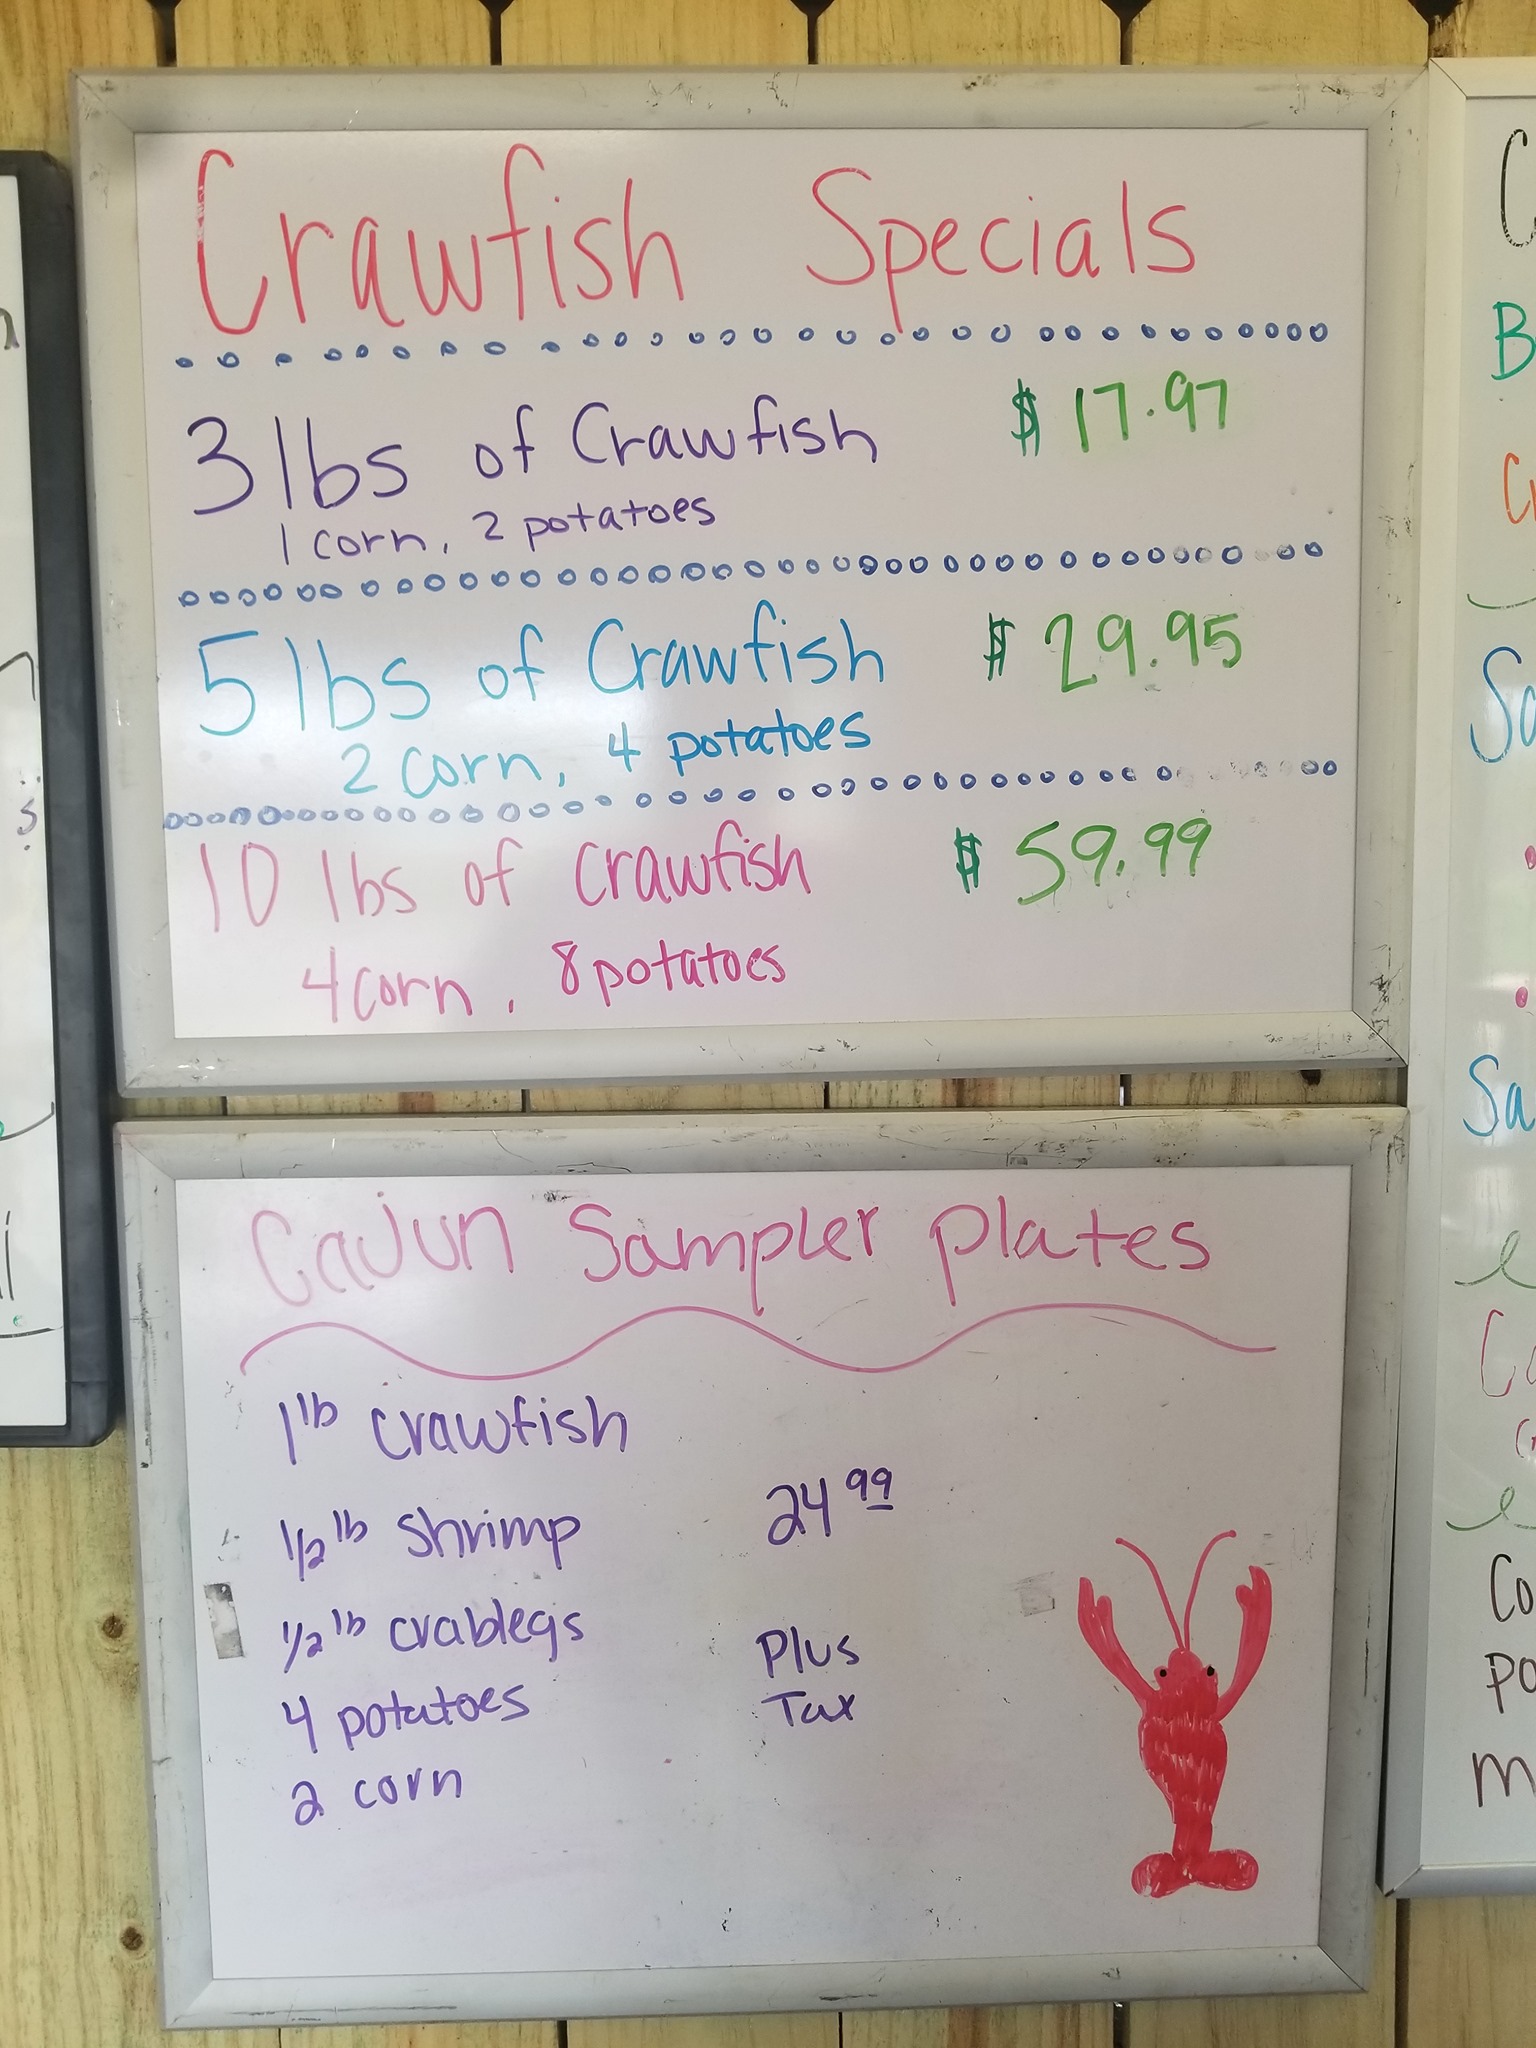 Crawfish Specials
3 lbs of Crawfish $ 17.97
1 corn, 2 potatoes
5 lbs of Crawfish $ 29.95
2 corn, 4 potatoes
10 lbs of crawfish $ 59.99
4 corn, 8 potatoes
Cajun Sampler Plates
1 lb crawfish
1/2 lb shrimp 24 99
1/2 lb crablegs
Plus
4 potatoes
Tax
2 corn